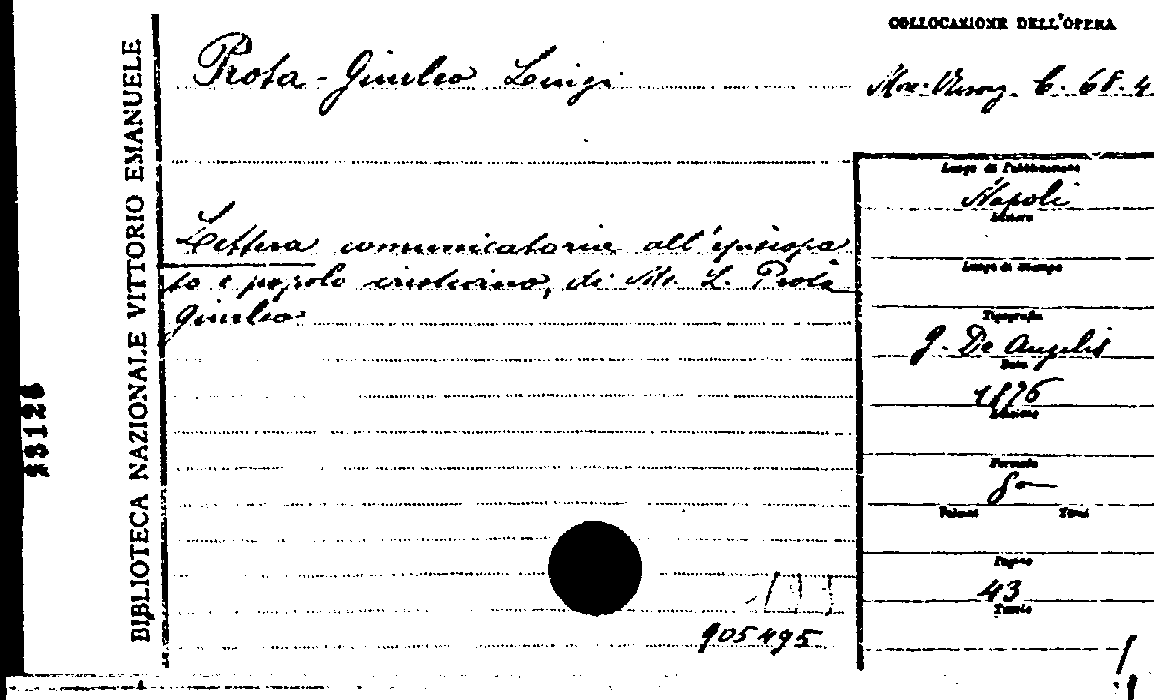 COLLOCAZIONE DELL'OPERA
Prota-Giurleo Luigi
C. 68. 4
BIBLIOTECA NAZIONALE VITTORIO EMANUELE
Luogo di Pubblicazione
Napoli
Editore
Lettera comunicatoria all'episcopa
to e popolo cristiano, di Mr. L. Prota
Giurleo
Luogo di stampa
Tipografia
G. De Angelis
Data
1876
Edizione
Formato
8°
Volumi Tomi
Pagine
43
Tavole
905495